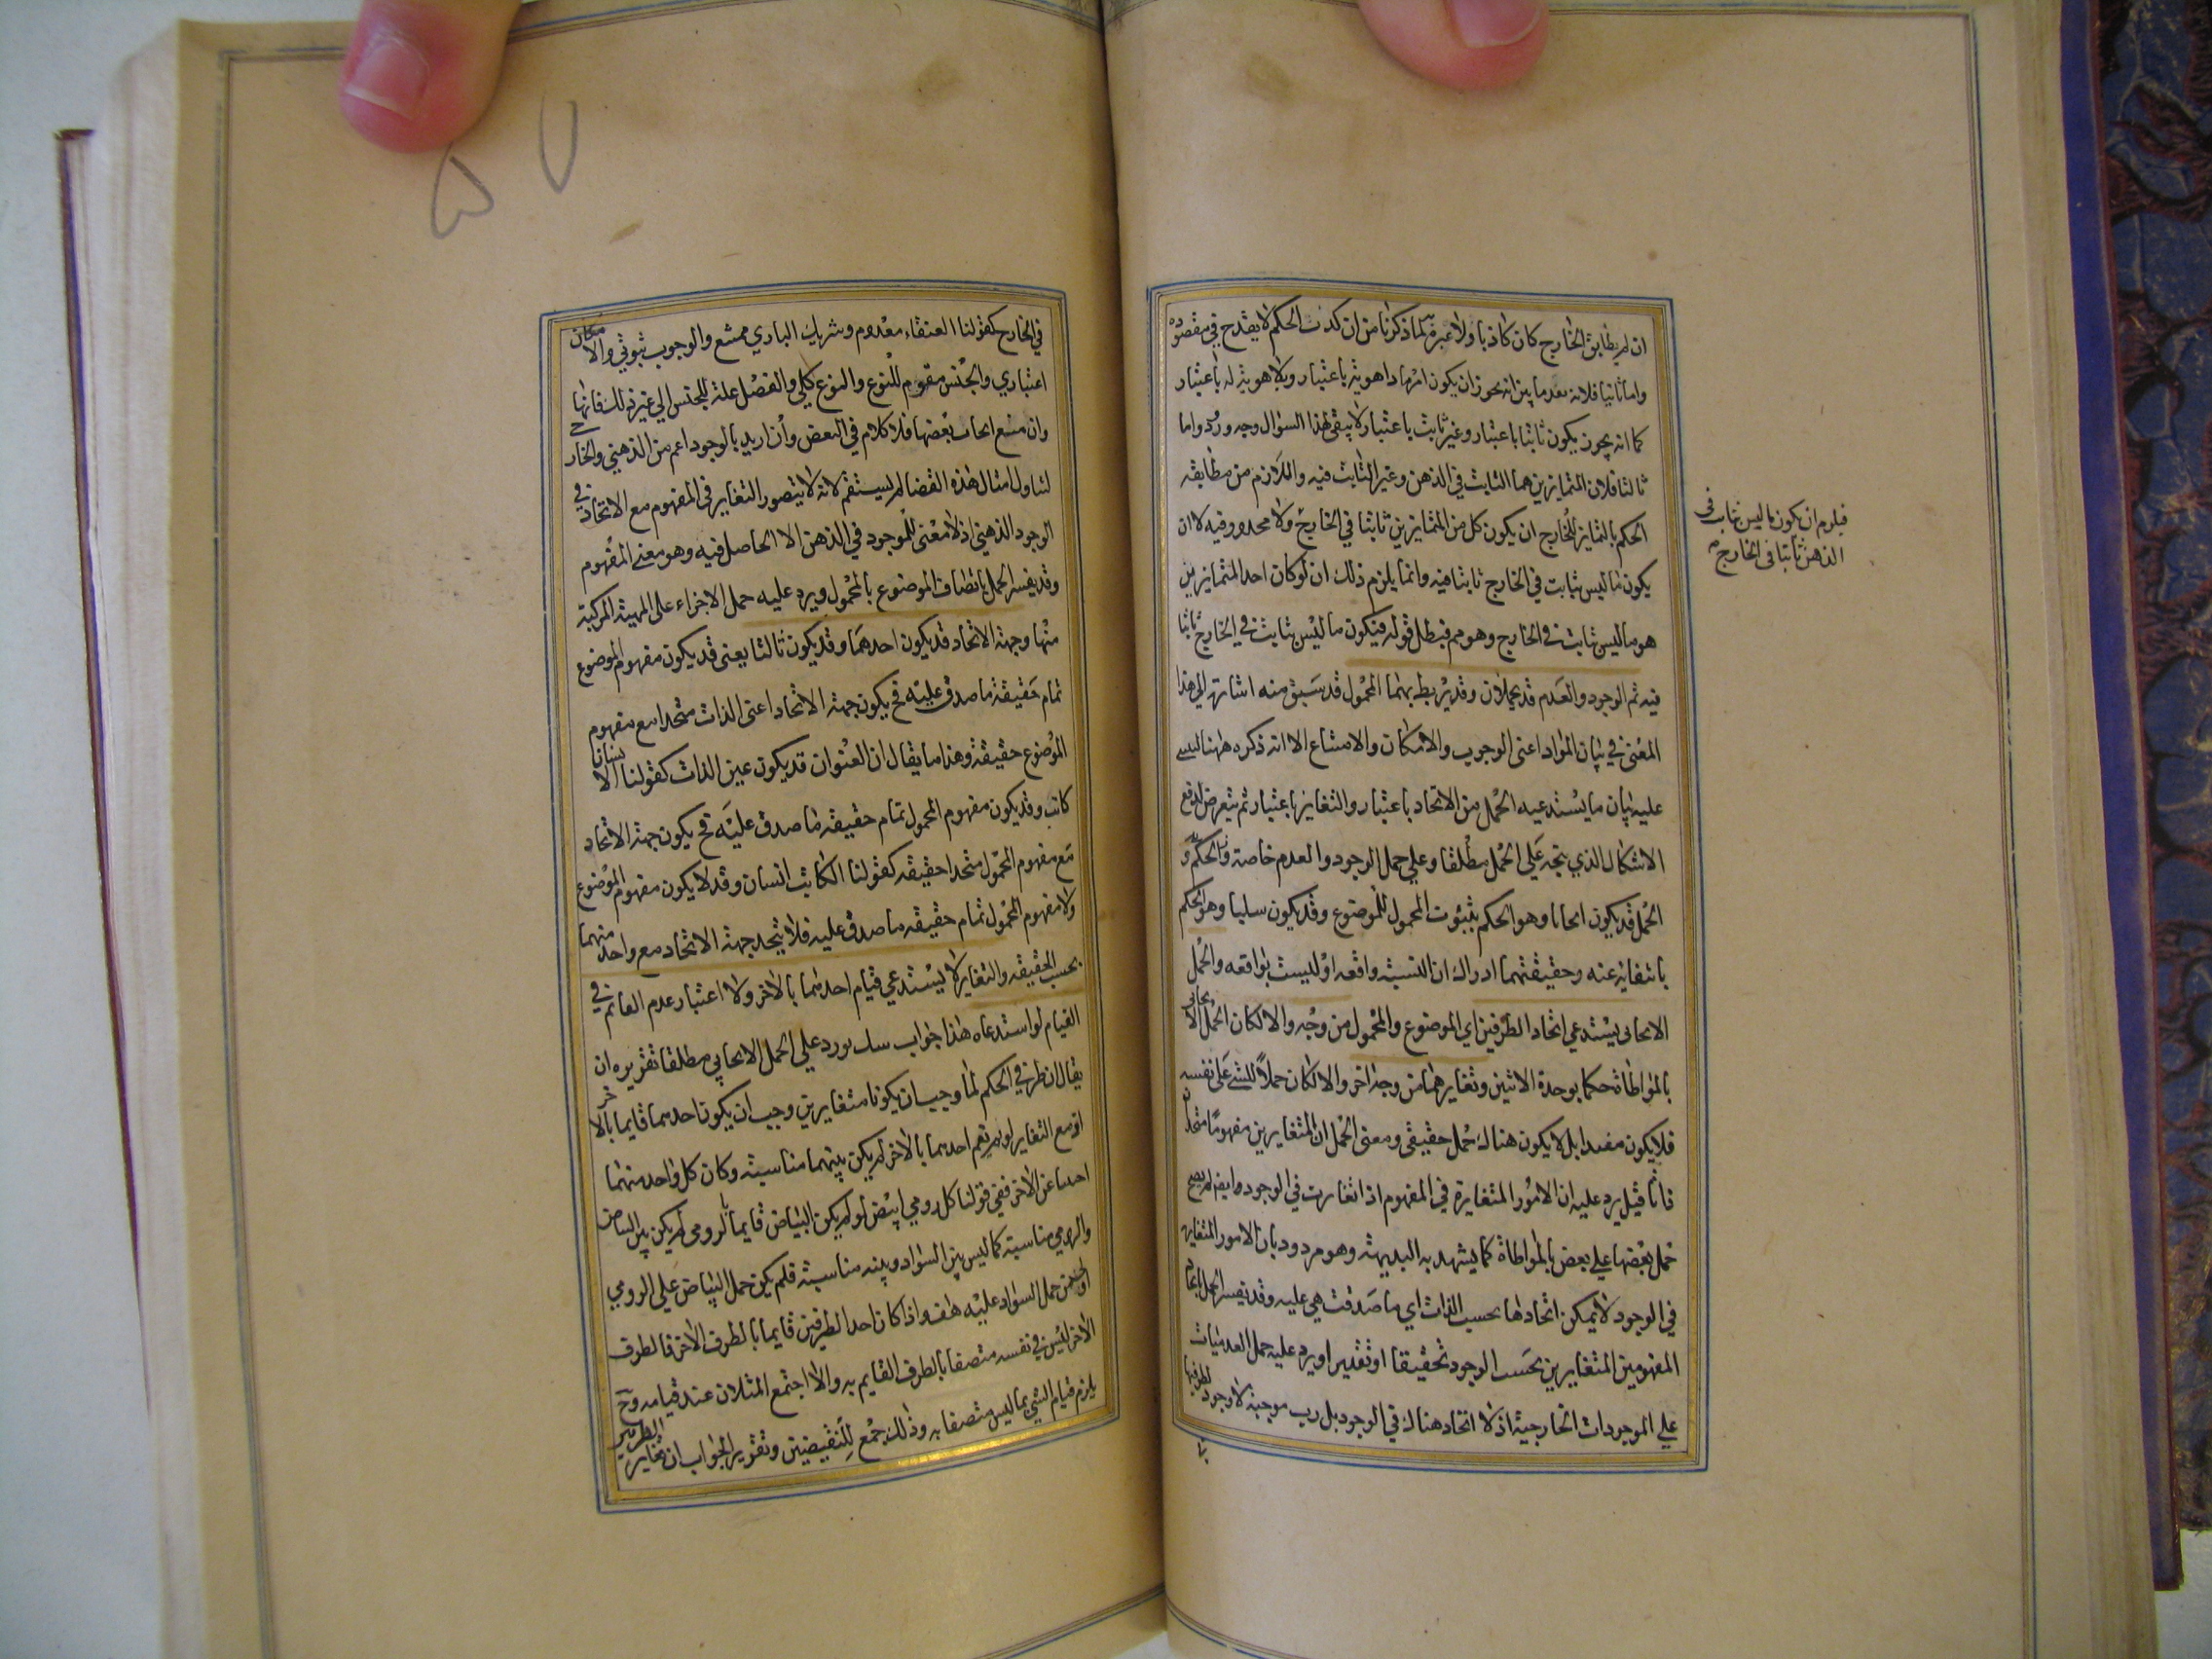 ان لم يطابق الخارج كان كاذبا ولا عبرة به لما ذكرنا من ان كذب الحكم لا يقدح في مقصوده
واما ثانيا فلانه بعد ما بين انه يجوز ان يكون امر ما ذا هوية باعتبار وبلا هوية له باعتبار
كما انه يجوز يكون ثابتا باعتبار وغير ثابت باعتبار لا يبقى لهذا السؤال وجه ورود واما
ثالثا فلان المتمايزين هما الثابت في الذهن وغير الثابت فيه واللازم من مطابقة
الحكم بالتمايز للخارج ان يكون كل من المتمايزين ثابتا في الخارج ولا محذور فيه لا ان
يكون ما ليس بثابت في الخارج ثابتا فيه وانما يلزم ذلك ان لو كان احد المتمايزين
هو ما ليس ثابت في الخارج وهو مم فبطل قوله فيكون ما ليس بثابت في الخارج ثابتا
فيه ثم الوجود والعدم قد يحملان وقد يربط بهما المحمول قد سبق منه اشارة الى هذا
المعنى في بيان المواد اعنى الوجوب والامكان والامتناع الا انه ذكره ههنا ليبنى
عليه بيان ما يستدعيه الحمل من الاتحاد باعتبار والتغاير باعتبار ثم يتعرض لدفع
الاشكال الذي يتجه على الحمل مطلقا وعلى حمل الوجود والعدم خاصة والحكم
الحمل قد يكون ايجابا وهو الحكم بثبوت المحمول للموضوع وقد يكون سلبا وهو الحكم
بانتفائه عنه وحقيقتهما ادراك ان النسبة واقعة او ليست بواقعه والحمل
الايجابي يستدعي اتحاد الطرفين اي الموضوع والمحمول من وجه والا لكان الحمل الايجابي
بالمواطاة حكما بوحدة الاثنين وتغايرهما من وجه اخر والا لكان حملا للشئ على نفسه
فلا يكون مفيدا بل لا يكون هناك حمل حقيقي ومعنى الحمل ان المتغايرين مفهوما متحدان
ذاتا قيل يرد عليه ان الامور المتغايرة في المفهوم اذا تغايرت في الوجود ايضا لم يصح
حمل بعضها على بعض بالمواطاة كما يشهد به البديهة وهو مردود بان الامور المتغايرة
في الوجود لا يمكن اتحادها بحسب الذات اي ما صدقت هي عليه وقد يفسر الحمل باتحاد
المفهومين المتغايرين بحسب الوجود تحقيقا او تقديرا ويرد عليه حمل العدميات
على الموجودات الخارجية اذ لا اتحاد هناك في الوجود بل رب موجبة لا وجود لطرفيها
فيلزم ان يكون ما ليس بثابت في
الذهن ثابتا في الخارج
في الخارج كقولنا العنقاء معدوم وشريك الباري ممتنع والوجوب ثبوتي والامكان
اعتباري والجنس مقوم للنوع والنوع كلي والفصل علة للجنس الى غير ذلك فانها
وان منع ايجاب بعضها فلا كلام في البعض وان اريد بالوجود اعم من الذهني والخارجي
لتناول امثال هذه القضايا لم يستقم لانه لا يتصور التغاير في المفهوم مع الاتحاد في
الوجود الذهني اذ لا معنى للموجود في الذهن الا الحاصل فيه وهو معنى المفهوم
وقد يفسر الحمل باتصاف الموضوع بالمحمول ويرد عليه حمل الاجزاء على المهية المركبة
منها وجهة الاتحاد قد يكون احدهما وقد يكون ثالثا يعنى قد يكون مفهوم الموضوع
تمام حقيقة ما صدق عليه فح يكون جهة الاتحاد اعنى الذات متحدا مع مفهوم
الموضوع حقيقة وهذا ما يقال ان العنوان قد يكون عين الذات كقولنا الانسان
كاتب وقد يكون مفهوم المحمول تمام حقيقة ما صدق عليه فح يكون جهة الاتحاد
مع مفهوم المحمول متحدا حقيقة كقولنا الكاتب انسان وقد لا يكون مفهوم الموضوع
ولا مفهوم المحمول تمام حقيقة ما صدق عليه فلا يتحد جهة الاتحاد مع واحد منهما
بحسب الحقيقة والتغاير لا يستدعي قيام احدهما بالاخر ولا اعتبار عدم القائم في
القيام لو استدعاه هذا جواب شك يورد على الحمل الايجابي مطلقا تقريره ان
يقال ان طرفي الحكم لما وجب ان يكونا متغايرين وجب ان يكون احدهما قايما بالاخر
اذ مع التغاير لو لم يقم احدهما بالاخر لم يكن بينهما مناسبة وكان كل واحد منهما
اجنبيا عن الاخر ففي قولنا كل رومي ابيض لو لم يكن البياض قايما بالرومي لم يكن بين البياض
والرومي مناسبة كما ليس بين السواد وبينه مناسبة فلم يكن حمل البياض على الرومي
اولى من حمل السواد عليه هف واذا كان احد الطرفين قايما بالطرف الاخر فالطرف
الاخر ليس في نفسه متصفا بالطرف القايم به والا اجتمع المثلان عند قيامه وح
يلزم قيام الشئ بما ليس متصفا به وذلك جمع للنقيضين وتقرير الجواب ان تغاير الطرفين